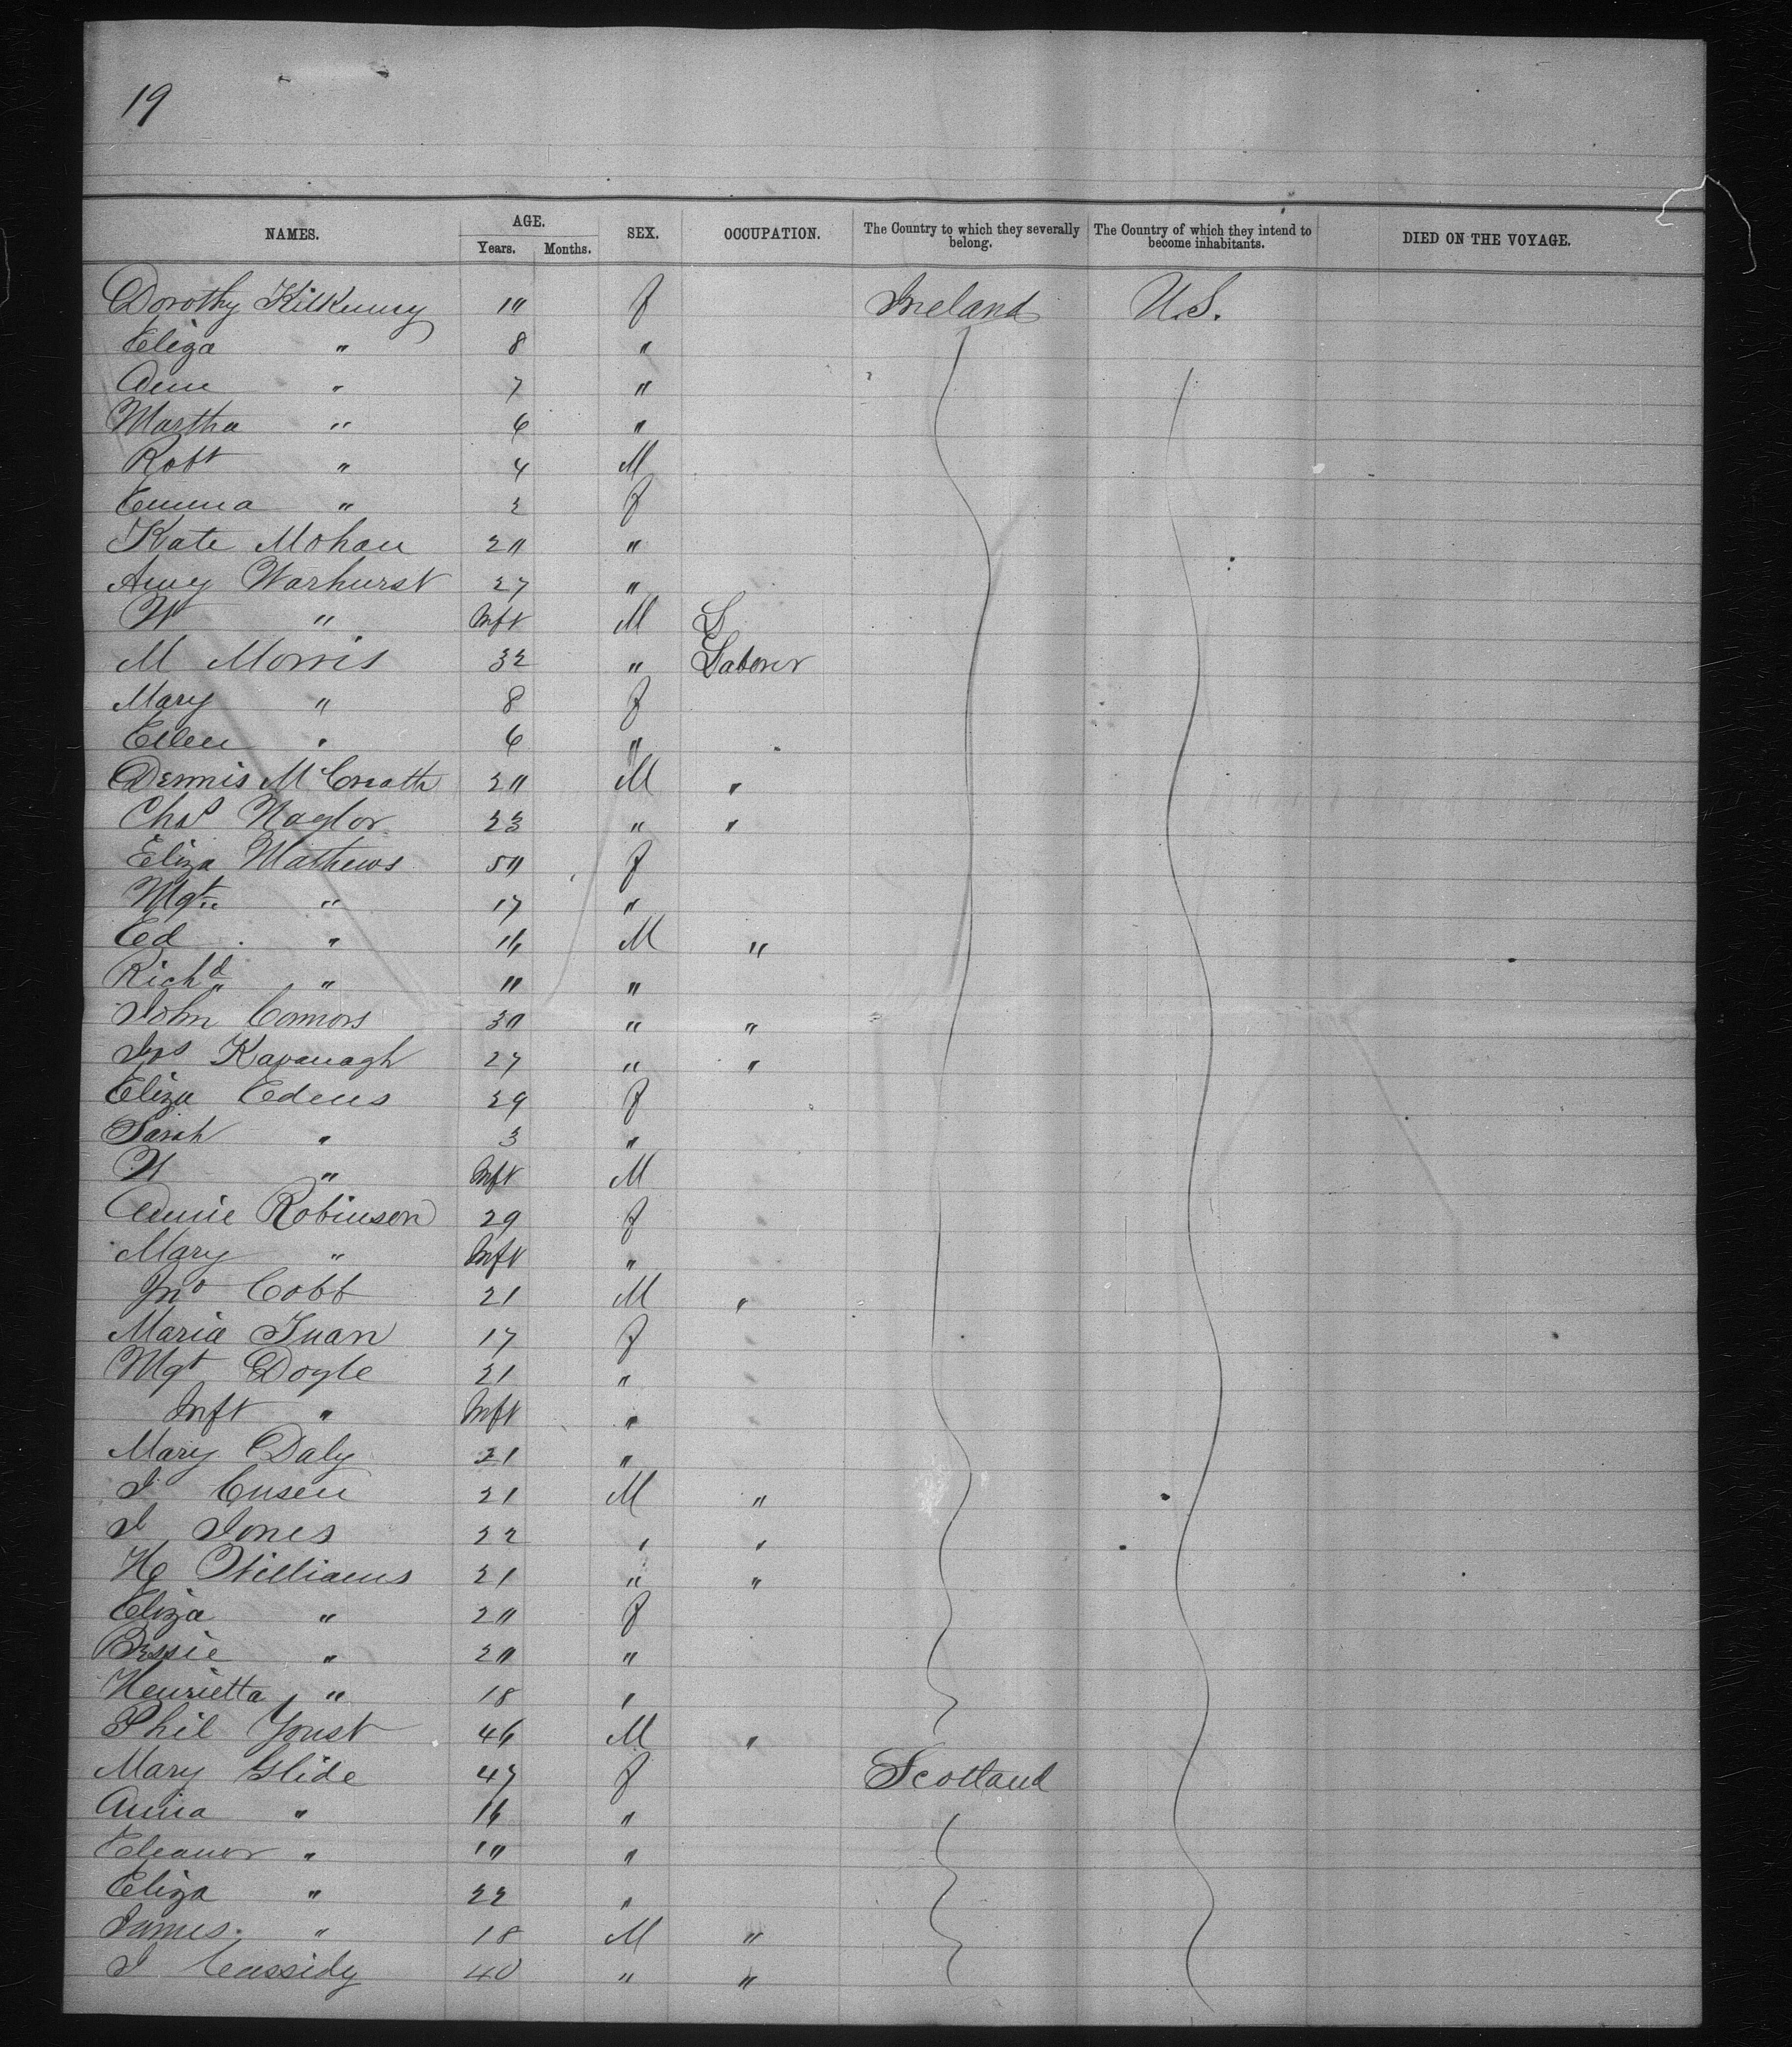 19
NAMES. AGE. Years. Months. SEX. OCCUPATION. The Country to which they severally belong. The Country of which they intend to become inhabitants. DIED ON THE VOYAGE.
Dorothy Kilkenny 10 f Ireland U.S.
Eliza " 8 "
Ann " 7 "
Martha " 6 "
Robt " 4 M
Emma " 2 f
Kate Mohan 20 "
Amy Warhurst 27 "
W " Inft M L
M Morris 32 " Laborer
Mary " 8 f
Ellen " 6 "
Dennis McCreath 20 M "
Chas Naylor 23 " "
Eliza Mathews 50 f
Mgt " 17 "
Ed " 16 M "
Richd " 11 "
John Connors 30 " "
Jas Kavanagh 27 " "
Eliza Edens 29 f
Sarah " 3 "
W " Inft M
Annie Robinson 29 f
Mary " Inft "
Jno Cobb 21 M "
Maria Juan 17 f
Mgt Doyle 21 "
Inft " Inft "
Mary Daly 21 "
J Cusen 21 M "
J Jones 22 " "
Hy Williams 21 " "
Eliza " 20 f
Bessie " 20 "
Henrietta " 18 "
Phil Joust 46 M "
Mary Glide 47 f Scotland
Anna " 16 "
Eleanor " 10 "
Eliza " 22 "
James " 18 M "
J Cassidy 40 " "